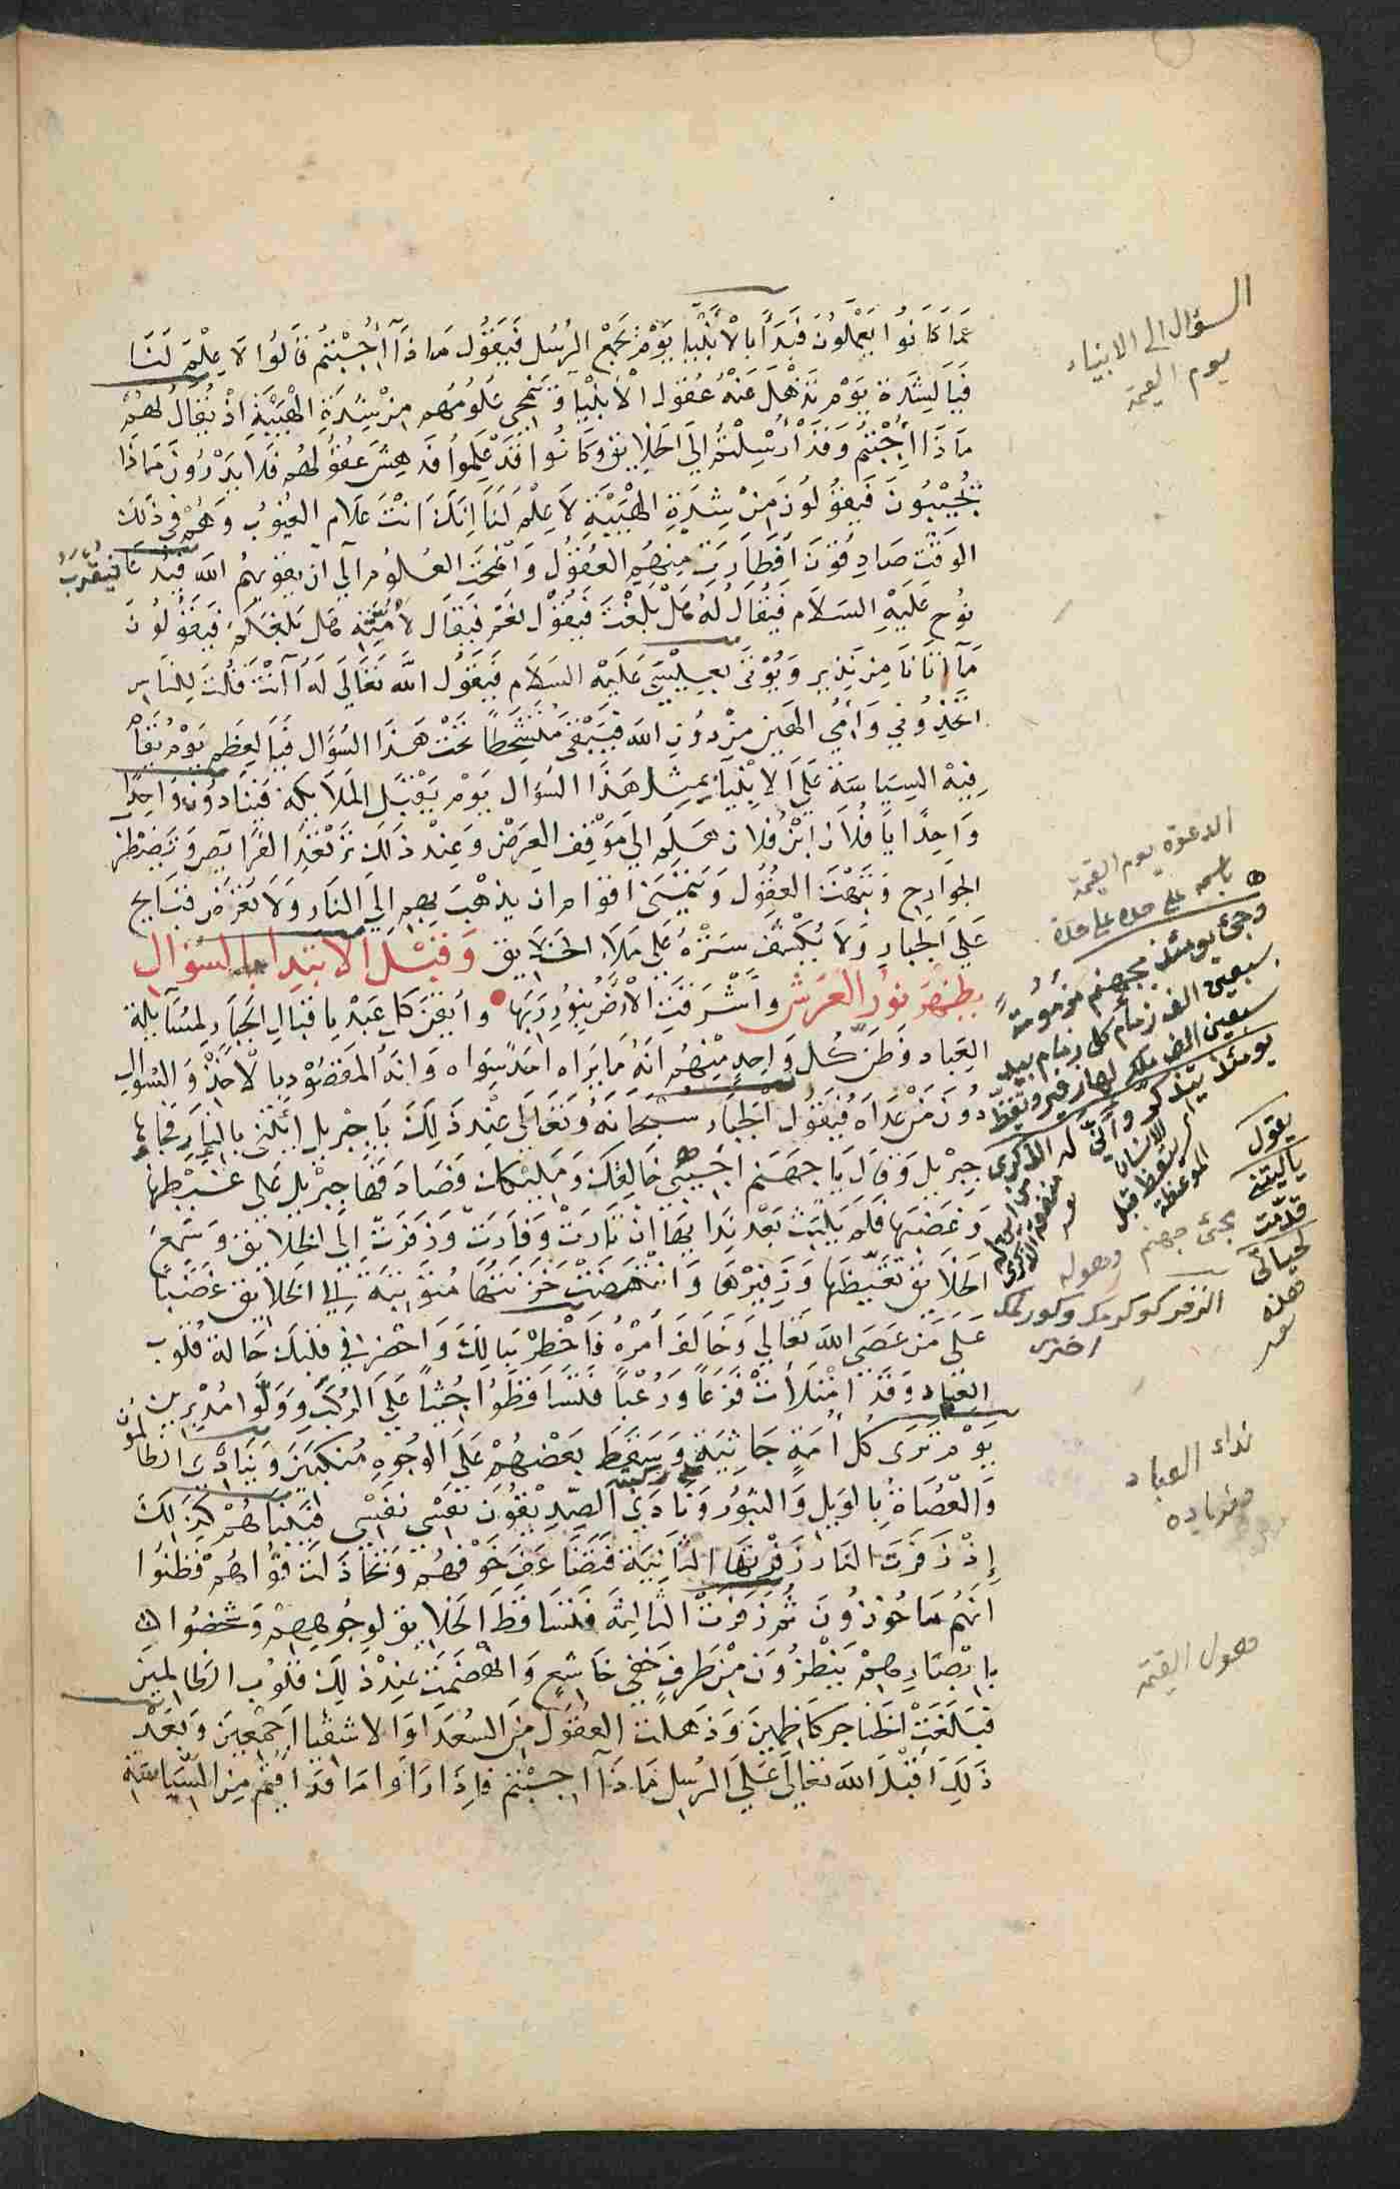 السؤال الى الانبياء
يوم القيمة
عَمَّا كَانُوا يَعْمَلُونَ فَيَبْدَأُ بِالْأَنْبِيَا يَوْمَ يَجْمَعُ الرُسُل فَيَقُولُ مَاذَآ أُجِبْتُم قَالُوا لَا عِلْمَ لَنَا
فَيَا لِشِدَّة يَوْم تَذْهَل عَنْهُ عُقُول الْأَنْبِيَآ وَتَنْمَحِي عُلُومُهم مِنْ شِدَّةِ الهَيْبَةِ اِذْ يُقَالُ لَهُمْ
مَاذَا اُجِبْتُمْ وَقَدْ اُرْسِلْتُمُ اِلَى الخَلَايق وَكَانُوا قَدْ عَلِمُوا فَدَهِشَ عُقُولهُم فَلَا يَدْرُونَ مَاذَا
يُجِيْبُونَ فَيَقُولُونَ مِنْ شِدَّةِ الهَيْبَةِ لَا عِلْمَ لَنَا اِنَّكَ اَنْتَ عَلَّام الغُيُوبُ وَهُمْ فِي ذَلِكَ
الوَقْتِ صَادِقُونَ اِذْ طَارَتْ مِنْهُم العُقُولُ وَانْمَحَتِ العُلُوم اِلَى اَنْ يُقَوِّيَهُمُ الله فَيُدْعَا
نُوح عَلَيْهِ السَلَام فَيُقَالُ لَهُ هَلْ بَلَّغْتَ فَيَقُوْل نَعَمْ فَيُقَال لِأُمَّتِه هَل بَلَّغَكُمْ فَيَقُولُونَ
مَآ اَتَانَا مِنْ نَذِيرٍ وَيُؤْتَى بِعِيسَى عَلَيْهِ السَلَام فَيَقُولُ اللهُ تَعَالَى لَهُ أَأَنْتَ قُلْتَ لِلنَّاسِ
اتَّخِذُونِي وَاُمِّي اِلهَيْنِ مِنْ دُوْنِ الله فَيَبْقَى مُتَشَحِّطًا تَحْتَ هَذَا السُؤَال فَيَا لِعِظَمِ يَوْم تُقَامُ
فِيْهِ السِيَاسَةُ عَلَى الأَنْبِيَآ بِمِثْلِ هَذَا السُؤَال يَوْم يَقْبَل المَلَايِكَة فَيُنَادُونَ وَاحِدًا
وَاحِدًا يَا فُلَان ابْنُ فُلَان هَلُمَّ اِلَى مَوْقِفِ العَرْضِ وَعِنْدَ ذَلِكَ تَرْتَعِدُ الفَرَايِصُ وَتَضْطَرِبُ
الجوارِح وَتُبْهَتُ العُقُول وَيَتَمَنَّى اقْوَامٌ ان يذهَب بِهِم اِلَى النَارِ وَلَا تُعْرَض قبَايح
عَلَى الجَبَّارِ وَلَا يُكْشَف سَتْرُهُ عَلَى مَلَاءِ الخَلَايق وَقَبْلَ الاِبْتِدَا بِالسُؤَالِ
يظهَر نُور العَرْش وَأَشْرَقَتِ الْأَرْضُ بِنُورِ رَبِّهَا وايقن كل عَبْد باقْبَال الجَبَّار لِمُسَايَلَةِ
العِبَاد وَظَنَّ كُل وَاحِد مِنْهُمْ اَنَّهُ مَا يَرَاه احَد سِوَاه وَانَّهُ المَقْصُوْد بالأَخْذِ وَالسُوَال
دُونَ مَنْ عَدَاه فَيَقُولُ الجَبَّار سُبْحَانَهُ وَتَعَالَى عِنْدَ ذَلِكَ يَا جِبْرِيل اِئْتِنِي بِالنَّارِ فَجَاهَا
جِبْرِيْل وَقَال يَا جَهَنَّم اَجِيْبِي خَالِقك وَمَلِيكك فَصَادَفَهَا جِبْرِيْلُ عَلَى غَيْظِهَا
وَغَضَبِهَا فَلَمْ يَلْبَثْ بَعْدَ نِدَايهَا اَنْ ثَارَتْ وَفَارَتْ وَزَفَرَتْ اِلَى الخَلَايق وَسَمِعَ
الخَلَايِقُ تَغَيُّظَهَا وَزَفِيْرَهَا وَانْتَهَضَتْ خَزَنَتُهَا مُتَوَثِّبَةً اِلَى الخَلَايق غَضَبًا
عَلَى مَنْ عَصَى اللهَ تَعَالى وَخَالَفَ اَمْرَهُ فَاَخْطِرْ بِبَالِكَ وَاحْضِرْ فِي قَلْبِكَ حَالَة قُلُوب
العِبَاد وَقَدْ اِمْتَلَأَتْ فَزَعًا وَرُعْبًا فَتَسَاقَطُوا جُثِيًّا عَلَى الرُكَبِ وَوَلَّوا مُدْبِرِين
يَوْم تَرَى كُل أُمَّةٍ جَاثِيَة وَسَقَطَ بَعْضُهُمْ عَلَى الوُجُوهِ مُنْكَبِّيْنَ وَيُنَادِي الظالمون
وَالعُصَاة بِالوَيْلِ وَالثبُوُر وَنَادَى الصِّدِّيْقُوْنَ نَفْسِي نَفْسِي فَبَيْنَمَا هُمْ كَذَلِكَ
إِذْ زَفَرَتِ النَار زَفْرَتَهَا الثَّانِيَة فَتَضَاعَفَ خَوْفهُمْ وَتَخَاذَلَتْ قُوَاهُمْ فَظَنُّوا
انَهُم مَاخُوذُونَ ثُمَّ زَفَرَتْ الثَالِثَة فَتَسَاقَطَ الخَلَايق لِوُجُوهِهِمْ وَشَخَصُوا
بِابْصَارِهِمْ يَنْظُرُونَ مِنْ طَرْفٍ خَفِيٍّ خَاشِعٍ وَانْهَضَمَتْ عِنْدَ ذَلِكَ قُلُوبُ الظالِمِيْنَ
فَبَلَغَتْ الحَنَاجِر كَاظِمِينَ وَذَهلت العُقُولُ مِنَ السُعَدَا وَالاشقيا اَجْمَعِينَ وَبَعْدَ
ذَلِكَ أَقْبَلَ الله تعالى عَلَى الرُسِل مَاذَا اُجِبْتُم فَاِذَا رَاَوا مَا قَد اُقِيْمَ مِنَ السِّيَاسَة
الدعوة يوم القيمة
باسمه على حده على حدة
وجئ يومئذ بجهنم مزمومة
سبعين الف زمام كل زمام بيد
سبعين الف ملك لها زفير وتغيّظ
يومئذ يتذكر الانسان وأنّى له الذكرى
يقول
ياليتنى
قدمت
لحياتى
مجئ جهنم وهوله
نداء العباد
هول القيمة